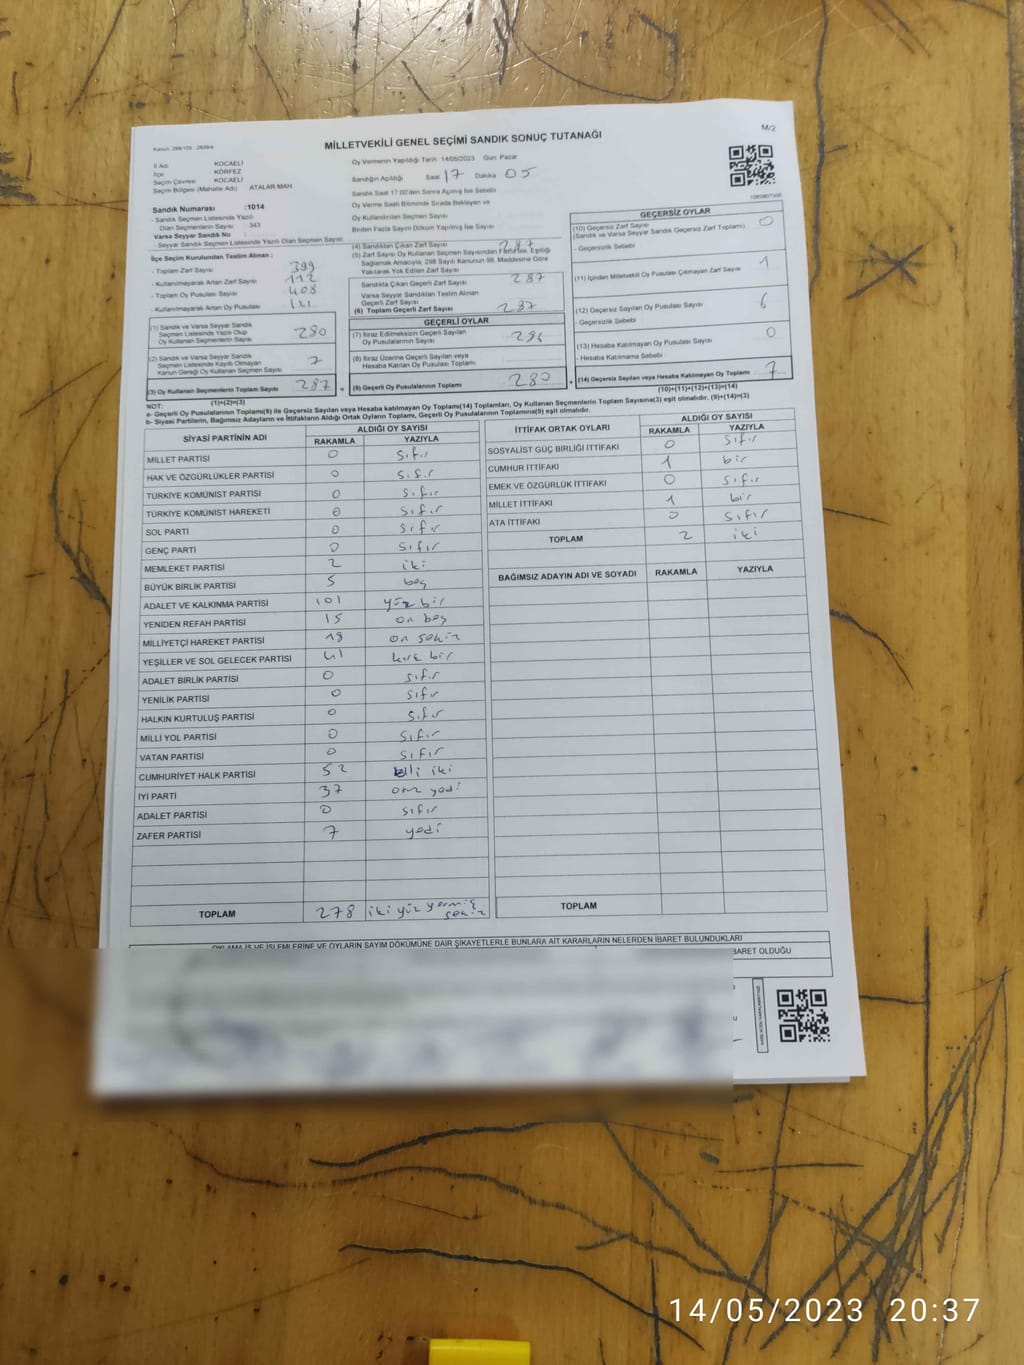 Kanun: 298/105 - 2839/4
MİLLETVEKİLİ GENEL SEÇİMİ SANDIK SONUÇ TUTANAĞI
M/2
İl Adı KOCAELİ
İlçe KÖRFEZ
Seçim Çevresi KOCAELİ
Seçim Bölgesi (Mahalle Adı) ATALAR MAH
Sandık Numarası :1014
- Sandık Seçmen Listesinde Yazılı
Olan Seçmenlerin Sayısı 343
Varsa Seyyar Sandık No :
- Seyyar Sandık Seçmen Listesinde Yazılı Olan Seçmen Sayısı
Oy Vermenin Yapıldığı Tarih 14/05/2023 Gün: Pazar
Sandığın Açıldığı Saat 17 Dakika 05
Sandık Saat 17:00'den Sonra Açılmış İse Sebebi
Oy Verme Saati Bitiminde Sırada Bekleyen ve
Oy Kullandırılan Seçmen Sayısı
Birden Fazla Sayım Döküm Yapılmış İse Sayısı
İlçe Seçim Kurulundan Teslim Alınan ;
- Toplam Zarf Sayısı 399
- Kullanılmayarak Artan Zarf Sayısı 112
- Toplam Oy Pusulası Sayısı 408
- Kullanılmayarak Artan Oy Pusulası 121
(1) Sandık ve Varsa Seyyar Sandık
Seçmen Listesinde Yazılı Olup
Oy Kullanan Seçmenlerin Sayısı 280
(2) Sandık ve Varsa Seyyar Sandık
Seçmen Listesinde Kaydı Olmayan
Kanun Gereği Oy Kullanan Seçmen Sayısı 7
(3) Oy Kullanan Seçmenlerin Toplam Sayısı 287
(1)+(2)=(3)
(4) Sandıktan Çıkan Zarf Sayısı 287
(5) Zarf Sayısı Oy Kullanan Seçmen Sayısından Fazla ise, Eşitliği
Sağlamak Amacıyla, 298 Sayılı Kanunun 98. Maddesine Göre
Yakılarak Yok Edilen Zarf Sayısı
Sandıkta Çıkan Geçerli Zarf Sayısı 287
Varsa Seyyar Sandıktan Teslim Alınan
Geçerli Zarf Sayısı
(6) Toplam Geçerli Zarf Sayısı 287
GEÇERLİ OYLAR
(7) İtiraz Edilmeksizin Geçerli Sayılan
Oy Pusulalarının Sayısı
(8) İtiraz Üzerine Geçerli Sayılan veya
Hesaba Katılan Oy Pusulası Toplamı
(9) Geçerli Oy Pusulalarının Toplamı 280
GEÇERSİZ OYLAR
(10) Geçersiz Zarf Sayısı 0
(Sandık ve Varsa Seyyar Sandık Geçersiz Zarf Toplamı)
- Geçersizlik Sebebi
(11) İçinden Milletvekili Oy Pusulası Çıkmayan Zarf Sayısı 1
(12) Geçersiz Sayılan Oy Pusulası Sayısı 6
- Geçersizlik Sebebi
(13) Hesaba Katılmayan Oy Pusulası Sayısı 0
- Hesaba Katılmama Sebebi
(14) Geçersiz Sayılan veya Hesaba Katılmayan Oy Toplamı 7
(10)+(11)+(12)+(13)=(14)
NOT:
Geçerli Oy Pusulalarının Toplamı(9) ile Geçersiz Sayılan veya Hesaba katılmayan Oy Toplamı(14) Toplamları, Oy Kullanan Seçmenlerin Toplam Sayısına(3) eşit olmalıdır. (9)+(14)=(3)
b- Siyasi Partilerin, Bağımsız Adayların ve İttifakların Aldığı Ortak Oyların Toplamı, Geçerli Oy Pusulalarının Toplamına(9) eşit olmalıdır.
SİYASİ PARTİNİN ADI ALDIĞI OY SAYISI
RAKAMLA YAZIYLA
MİLLET PARTİSİ 0 sıfır
HAK VE ÖZGÜRLÜKLER PARTİSİ 0 sıfır
TÜRKİYE KOMÜNİST PARTİSİ 0 sıfır
TÜRKİYE KOMÜNİST HAREKETİ 0 sıfır
SOL PARTİ 0 sıfır
GENÇ PARTİ 0 sıfır
MEMLEKET PARTİSİ 2 iki
BÜYÜK BİRLİK PARTİSİ 5 beş
ADALET VE KALKINMA PARTİSİ 101 yüz bir
YENİDEN REFAH PARTİSİ 15 on beş
MİLLİYETÇİ HAREKET PARTİSİ 18 on sekiz
YEŞİLLER VE SOL GELECEK PARTİSİ 41 kırk bir
ADALET BİRLİK PARTİSİ 0 sıfır
YENİLİK PARTİSİ 0 sıfır
HALKIN KURTULUŞ PARTİSİ 0 sıfır
MİLLİ YOL PARTİSİ 0 sıfır
VATAN PARTİSİ 0 sıfır
CUMHURİYET HALK PARTİSİ 52 elli iki
İYİ PARTİ 37 otuz yedi
ADALET PARTİSİ 0 sıfır
ZAFER PARTİSİ 7 yedi
TOPLAM 278 iki yüz yetmiş sekiz
İTTİFAK ORTAK OYLARI ALDIĞI OY SAYISI
RAKAMLA YAZIYLA
SOSYALİST GÜÇ BİRLİĞİ İTTİFAKI 0 sıfır
CUMHUR İTTİFAKI 1 bir
EMEK VE ÖZGÜRLÜK İTTİFAKI 0 sıfır
MİLLET İTTİFAKI 1 bir
ATA İTTİFAKI 0 sıfır
TOPLAM 2 iki
BAĞIMSIZ ADAYIN ADI VE SOYADI RAKAMLA YAZIYLA
TOPLAM
OYLAMA İŞ VE İŞLEMLERİNE VE OYLARIN SAYIM DÖKÜMÜNE DAİR ŞİKAYETLERLE BUNLARA AİT KARARLARIN NELERDEN İBARET BULUNDUKLARI
BARET OLDUĞU
14/05/2023 20:37